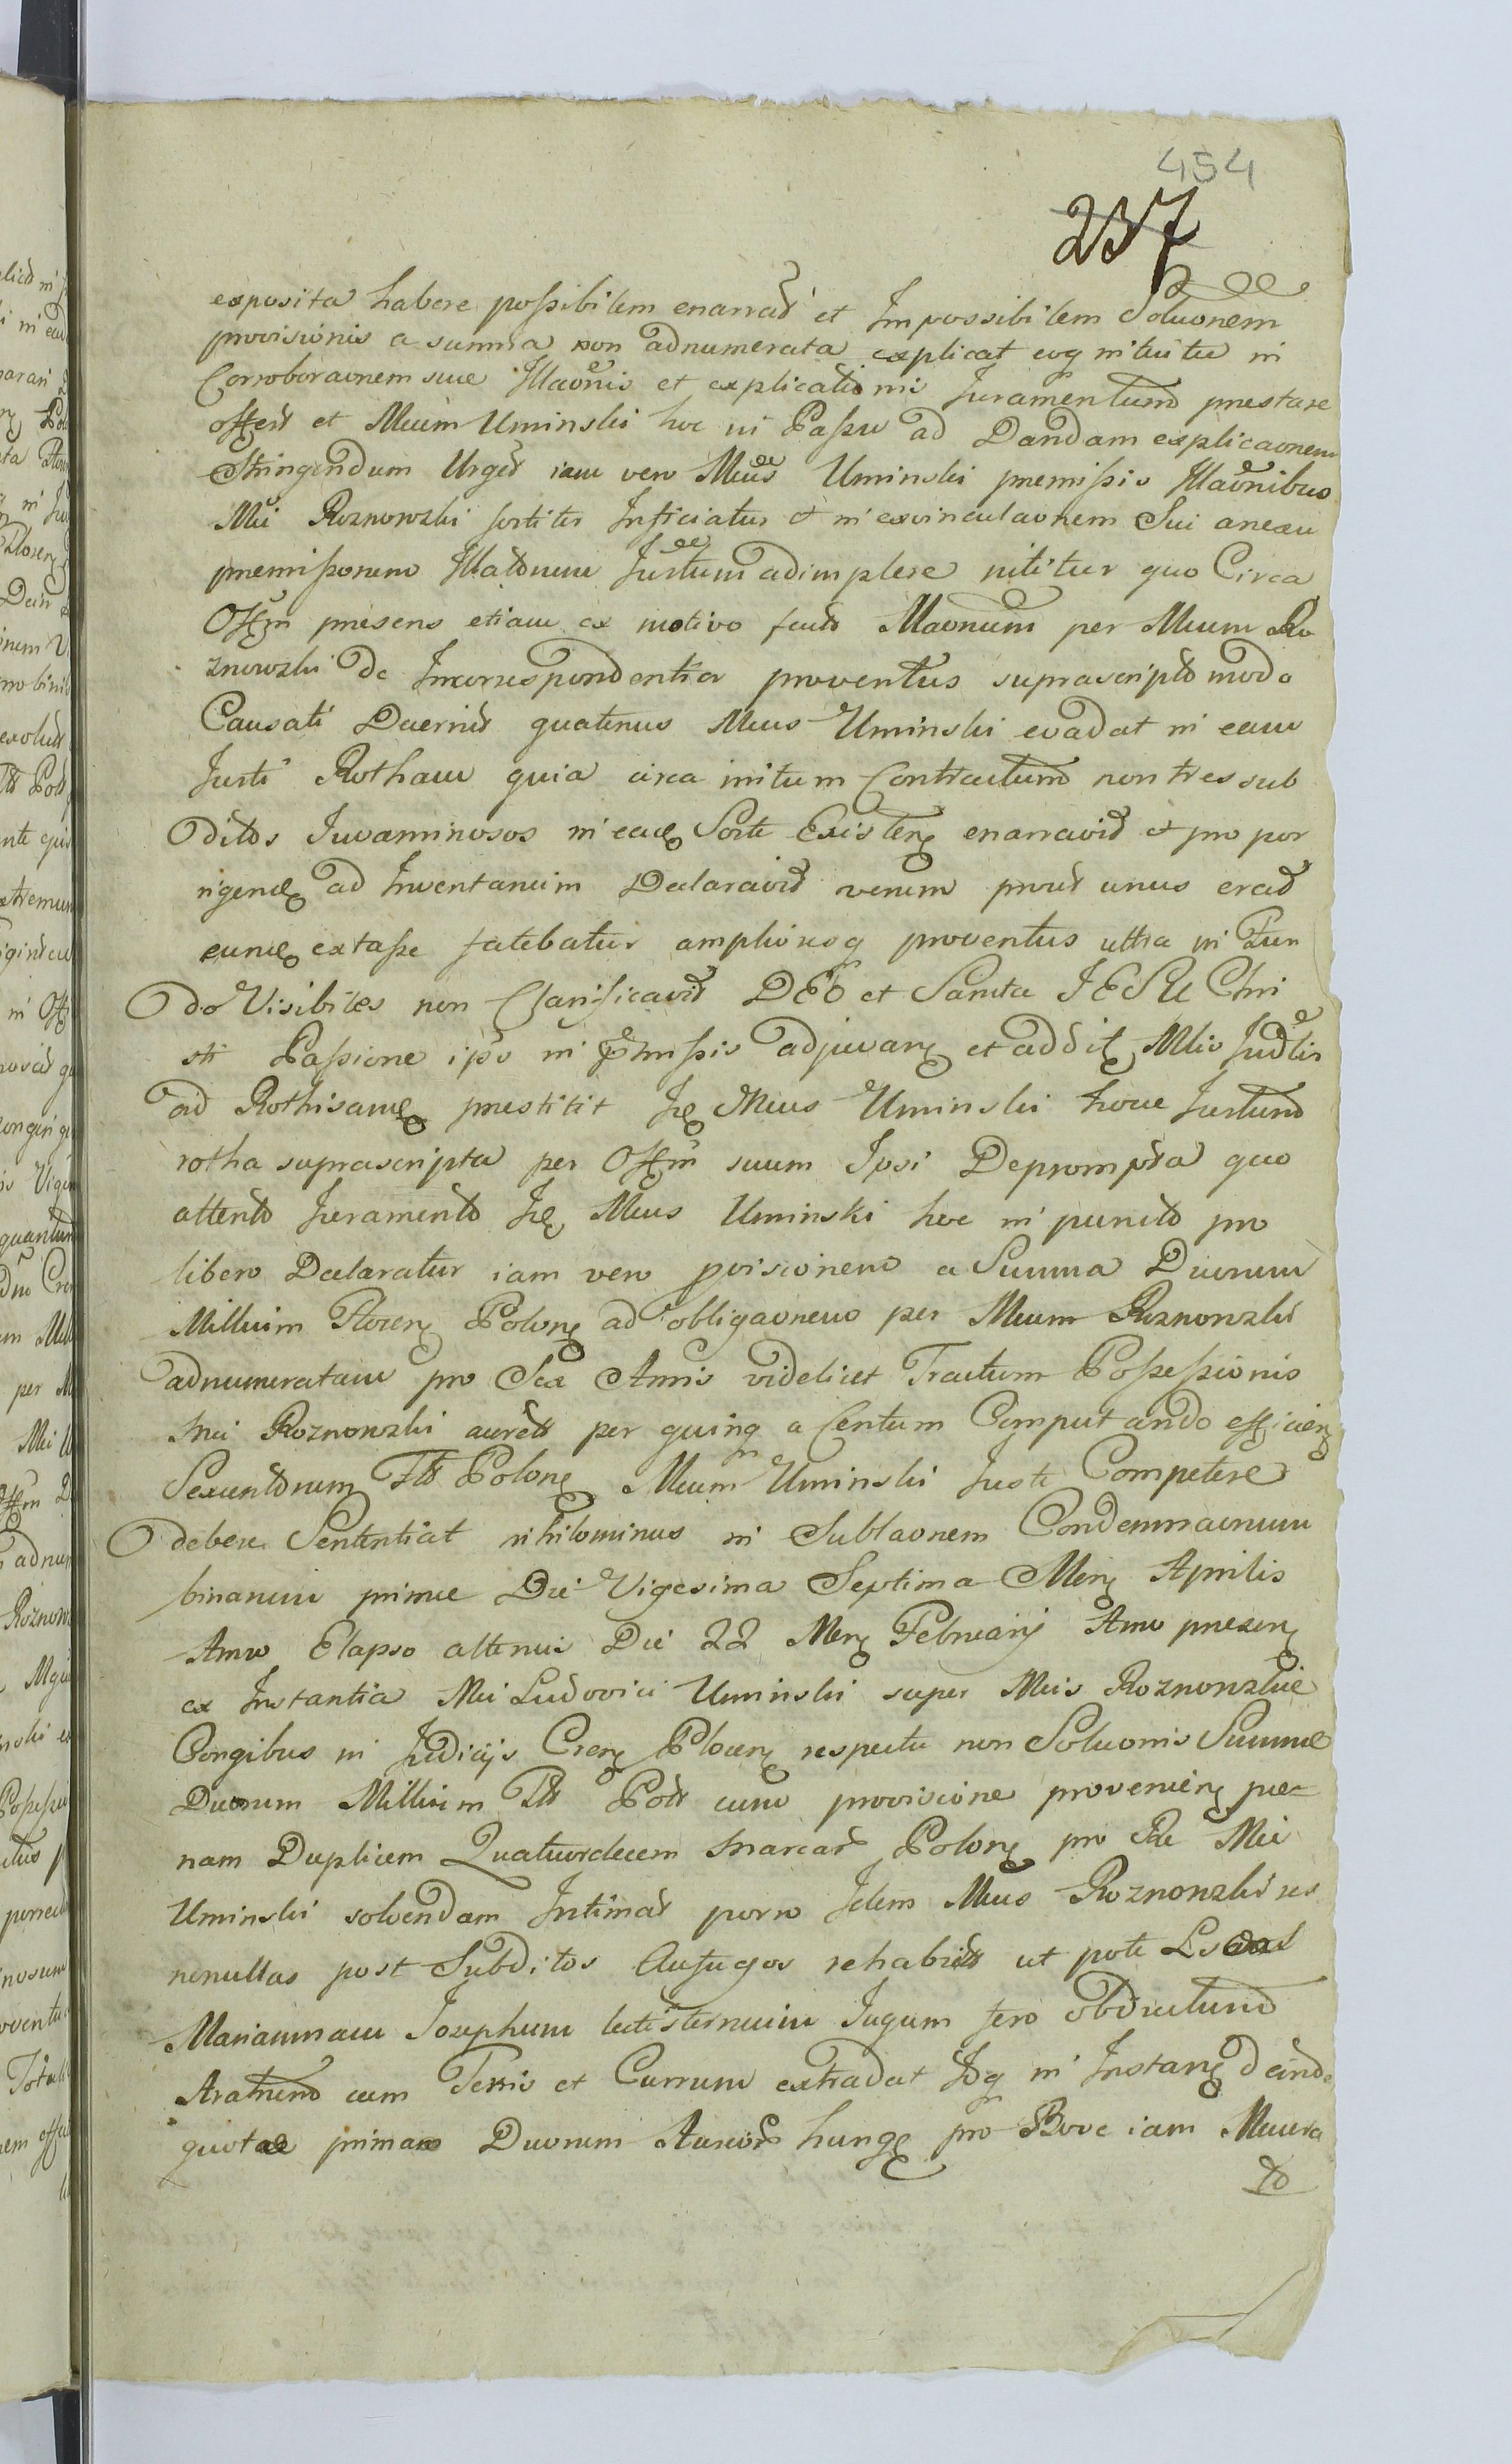 454
237
exposita habere possibilem enarrat et Impossibilem Soluonem
provisionis a summa non adnumerata explicat eoq intuitu in
Corroboraonem suae Illaonis et explicationis Juramentum praestare
offert et Mcum Uminski hoc in Passu ad Dandam explicaonem
Stringendum Urget iam vero Mcus Uminski praemissis Illaonibus
Mci Roznowski fortiter Inficiatur et in exvinculaonem Sui
Illatonum Jurtum adimplere nititur quo Circa
Offm praesens etiam ex motivo per Mcum Ro
znowski De Incorrespondentia proventus suprascripto modo
Causati Decernit quatenus Mcus Uminski evadat in eam
Jurti Rotham quia circa initum Contractum non tres sub
ditos Juvaminosos in Sorte Existen enarravit et pro por
ad Inventarium Declaravit verum prout unus erat
extasse fatebatur proventus ultra in Fun
do Visibiles non Clarificavit DEO et Sancta JESU Chri
sti Passione ipso in adjuvan et
ad Rothisandum praestitit Mcus Uminski Jurtum
rotha suprascripta per Offm suum Ipsi Deprompta quo
attento Juramento Mcus Uminski hoc in puncto pro
libero Declaratur iam vero provisionem a Summa Duorum
Millium Floren Polon ad obligaonem per Mcum Roznowski
adnumeratam pro Sex Annis videlicet Tractum Possessionis
Mci Roznowski per quinq a Centum Computando efficien
Sexcentorum Flo Polon Mcum Uminski Juste Competere
debere Sententiat nihilominus in Sublaonem Condemnaonum
binarum primae Die Vigesima Septima Men Aprilis
Anno Elapso alterius Die 22 Men Februarij Anno praesen
ex Instantia Mci Ludovici Uminski super Mcis Roznowskie
Congibus in Judicijs Cren Plocen respectu non Soluonis Summae
Duorum Millium Flo Polo cum provisione provenien pae-
nam Duplicem Quatuordecem Marcar Polon pro Re Mci
Uminski solvendam Intimat porro Idem Mcus Roznowski res
nonullas post Subditos Aufugos rehabitas ut pote
Mariannam Josephum lectisternium Jugum fero obductum
Aratrum cum Ferris et Currum extradat Idq in Instan deinde
quotae primae Duorum Aureor hung pro Bove iam
to